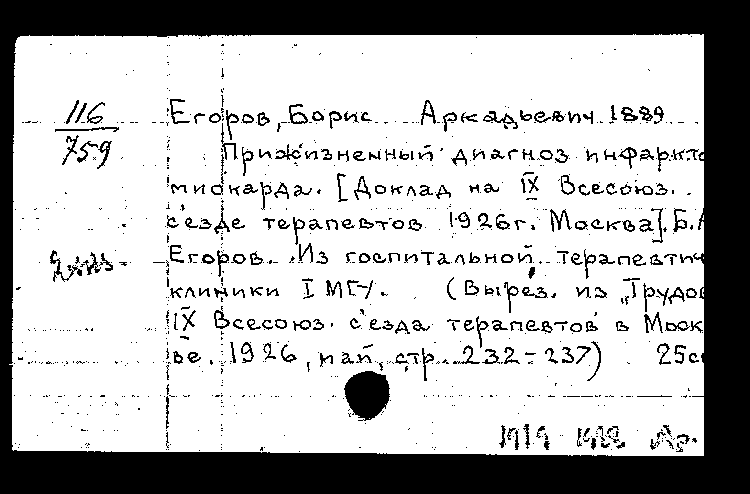 116
759
Егоров, Борис Аркадьевич 1889
Прижизненный диагноз инфаркта
миокарда. [Доклад на IX Всесоюз.
с'езде терапевтов 1926г. Москва]. Б.А
Егоров. Из госпитальной терапевтич
клиники I МГУ. (Вырез. из „Трудов
IX Всесоюз. с'езда терапевтов в Моск
ве. 1926, май, стр. 232-237) 25см
1919 1922